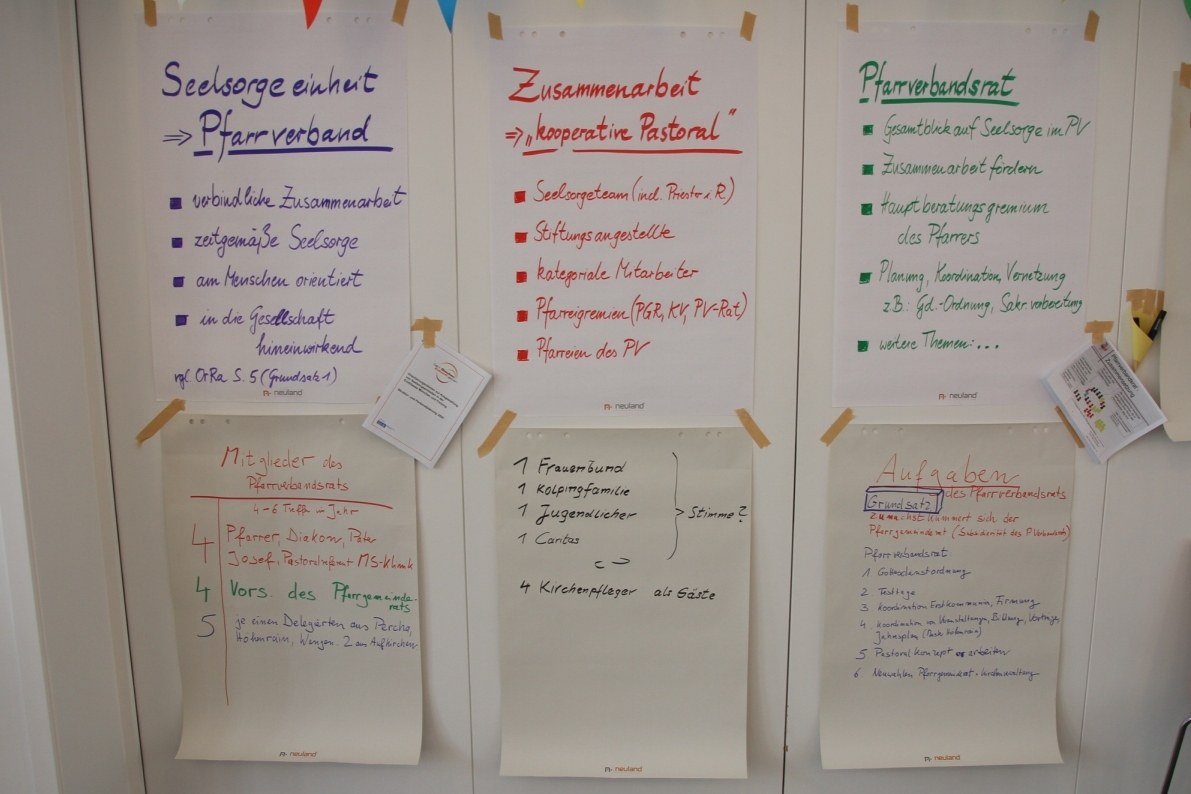 Seelsorgeeinheit
⇒ Pfarrverband
verbindliche Zusammenarbeit
zeitgemäße Seelsorge
am Menschen orientiert
in die Gesellschaft
hineinwirkend
vgl. OrRa S. 5 (Grundsatz 1)
neuland
Zusammenarbeit
⇒ „kooperative Pastoral"
Seelsorgeteam (incl. Priester i. R.)
Stiftungsangestellte
kategoriale Mitarbeiter
Pfarreigremien (PGR, KV, PV-Rat)
Pfarreien des PV
neuland
Pfarrverbandsrat
Gesamtblick auf Seelsorge im PV
Zusammenarbeit fördern
Hauptberatungsgremium
des Pfarrers
Planung, Koordination, Vernetzung
z.B.: Gd.-Ordnung, Sakr.vorbereitung
weitere Themen: ...
neuland
Mitglieder des
Pfarrverbandsrats
4-6 Treff. Jahr
4 Pfarrer, Diakon, Pater
Josef,
4 Vors. des Pfarrgemeinde-
rats
5 je einen Delegierten aus Percha,
Höhenrain, Wangen. 2 aus Aufkirchen
neuland
1 Frauenbund
1 Kolpingfamilie
1 Jugendlicher
1 Caritas
Stimme?
4 Kirchenpfleger als Gäste
neuland
Aufgaben
des Pfarrverbandsrats
Grundsatz
zunächst kümmert sich der
Pfarrgemeinderat (Subsidiarität des
Pfarrverbandsrat
1 Gottesdienstordnung
2 Festtage
3 Koordination Erstkommunion, Firmung
4 Koordination von Veranstaltungen, Bildung, Vorträge,
Jahresplan
5 Pastoralkonzept erarbeiten
6 Neuwahlen Pfarrgemeinderat + Kirchenverwaltung
neuland